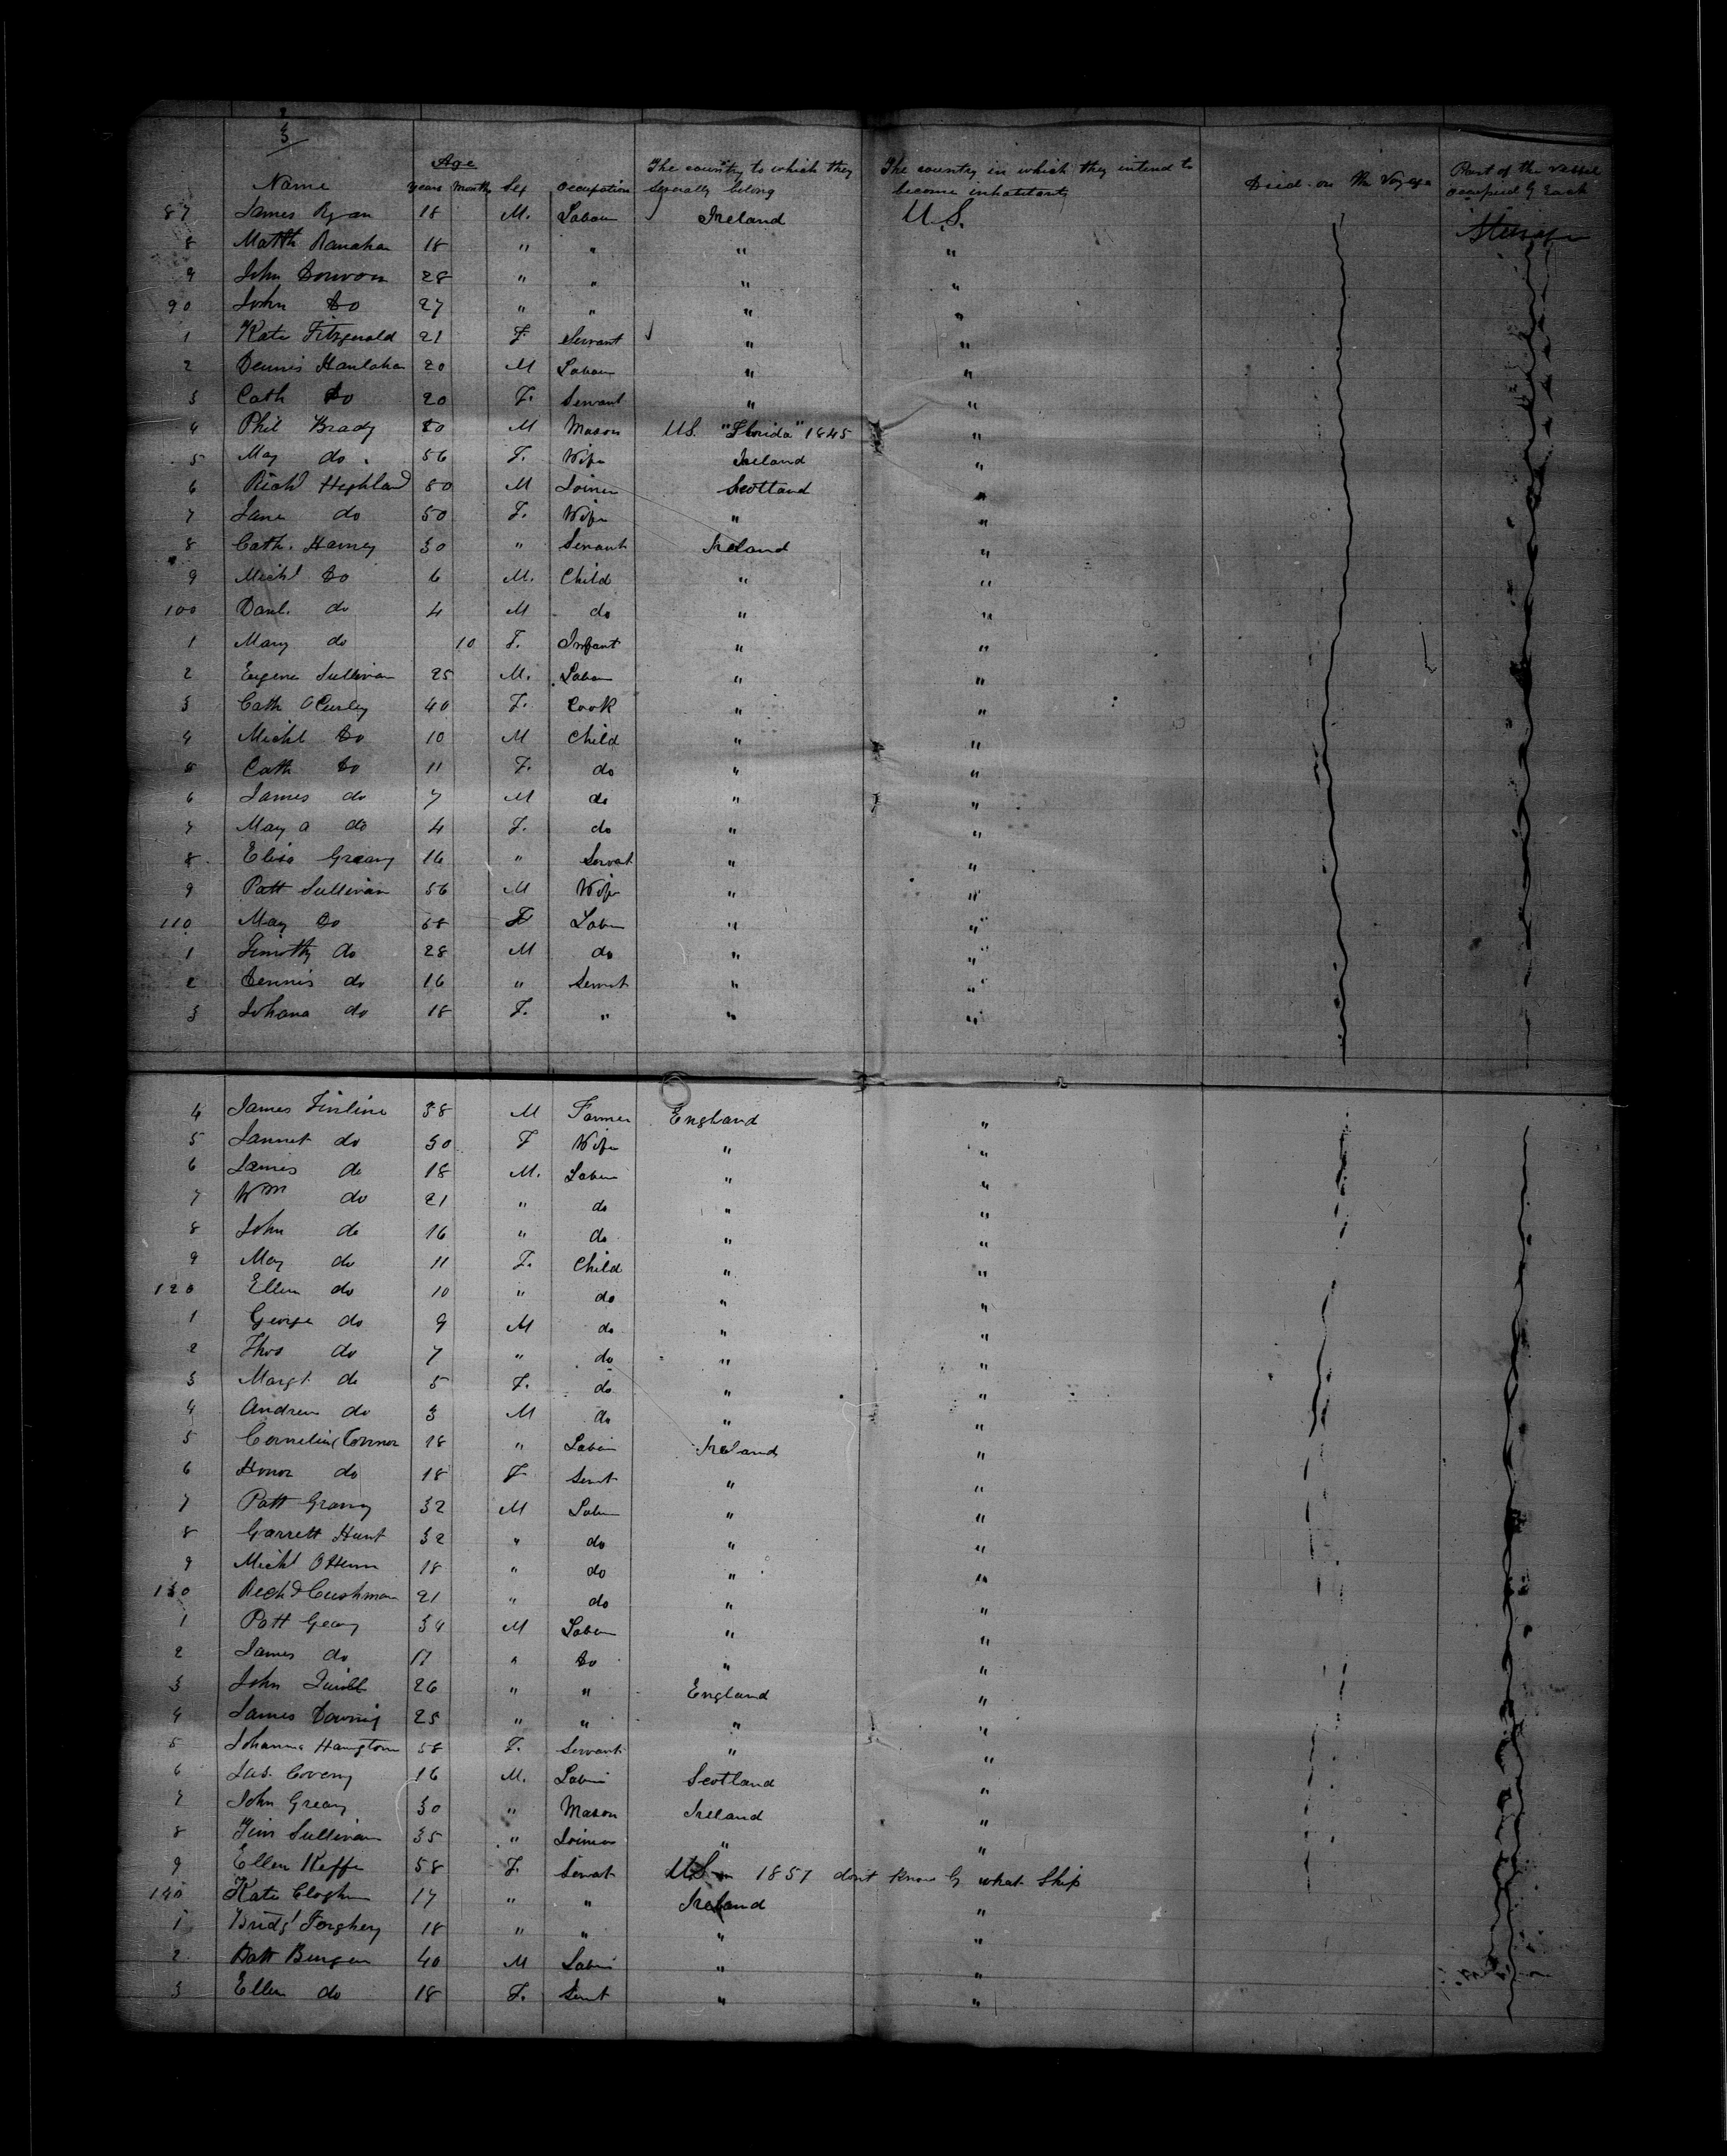 3
Name Age years Months Sex occupation The country to which they severally belong The country in which they intend to become inhabitants Died on the Voyage Part of the vessel occupied by Each
87 James Ryan 18 M. Labour Ireland U.S. Steerage
8 Matth Ranahan 18 " " " "
9 John Donovan 28 " " " "
90 John Do 27 " " " "
1 Kate Fitzgerald 21 F Servant " "
2 Dennis Hanlahan 20 M Labour " "
3 Cath Do 20 F. Servant " "
4 Phil Brady M Mason U.S. "Florida" 1845 "
5 May do. 56 F. Wife Ireland "
6 Richd Highland M Joiner Scotland "
7 Jane do 50 F. Wife " "
8 Cath. Harney 30 " Servant Ireland "
9 Michl Do 6 M. Child " "
100 Danl. do 4 M do " "
1 Mary do 10 F. Infant " "
2 Eugene Sullivan 25 M. Labour " "
3 Cath 40 F. Cook " "
4 Michl Do 10 M Child " "
5 Cath Do 11 F. do " "
6 James do 7 M do " "
7 May a do 4 F. do " "
8 Eliza Greany 16 " Servat " "
9 Patt Sullivan 56 M Wife " "
110 May Do F Labr " "
1 Timothy do 28 M do " "
2 Dennis do 16 " Servt " "
3 Johana do 18 F. " " "
4 James 38 M Farmer England "
5 Jannet do 30 F Wife " "
6 James do 18 M. Labour " "
7 Wm do 21 " do " "
8 John do 16 " do " "
9 May do 11 F. Child " "
120 Ellen do 10 " do " "
1 George do 9 M do " "
2 Thos do 7 " do " "
3 Margt. do 5 F. do " "
4 Andrew do 3 M do " "
5 Cornelius Connor 18 " Labour Ireland "
6 Honor do 18 F Servt " "
7 Patt 32 M Labr " "
8 Garrett Hunt 32 " do " "
9 Michl 18 " do " "
130 Richd Cushman 21 " do " "
1 Patt Geany 34 M Labour " "
2 James do 17 " Do " "
3 John 26 " " England "
4 James Downing 25 " " " "
5 Johanna Hamgton 58 F. Servant " "
6 Jas. Coveny 16 M. Labour Scotland "
7 John Greany 30 " Mason Ireland "
8 Tim Sullivan 35 " Joiner " "
9 Ellen Keffe 58 F. Servat U.S. in 1857 dont know by what Ship
140 Kate 17 " " Ireland "
1 Bridgt 18 " " " "
2 Patt 40 M Labour " "
3 Ellen do 18 F. Servt " "